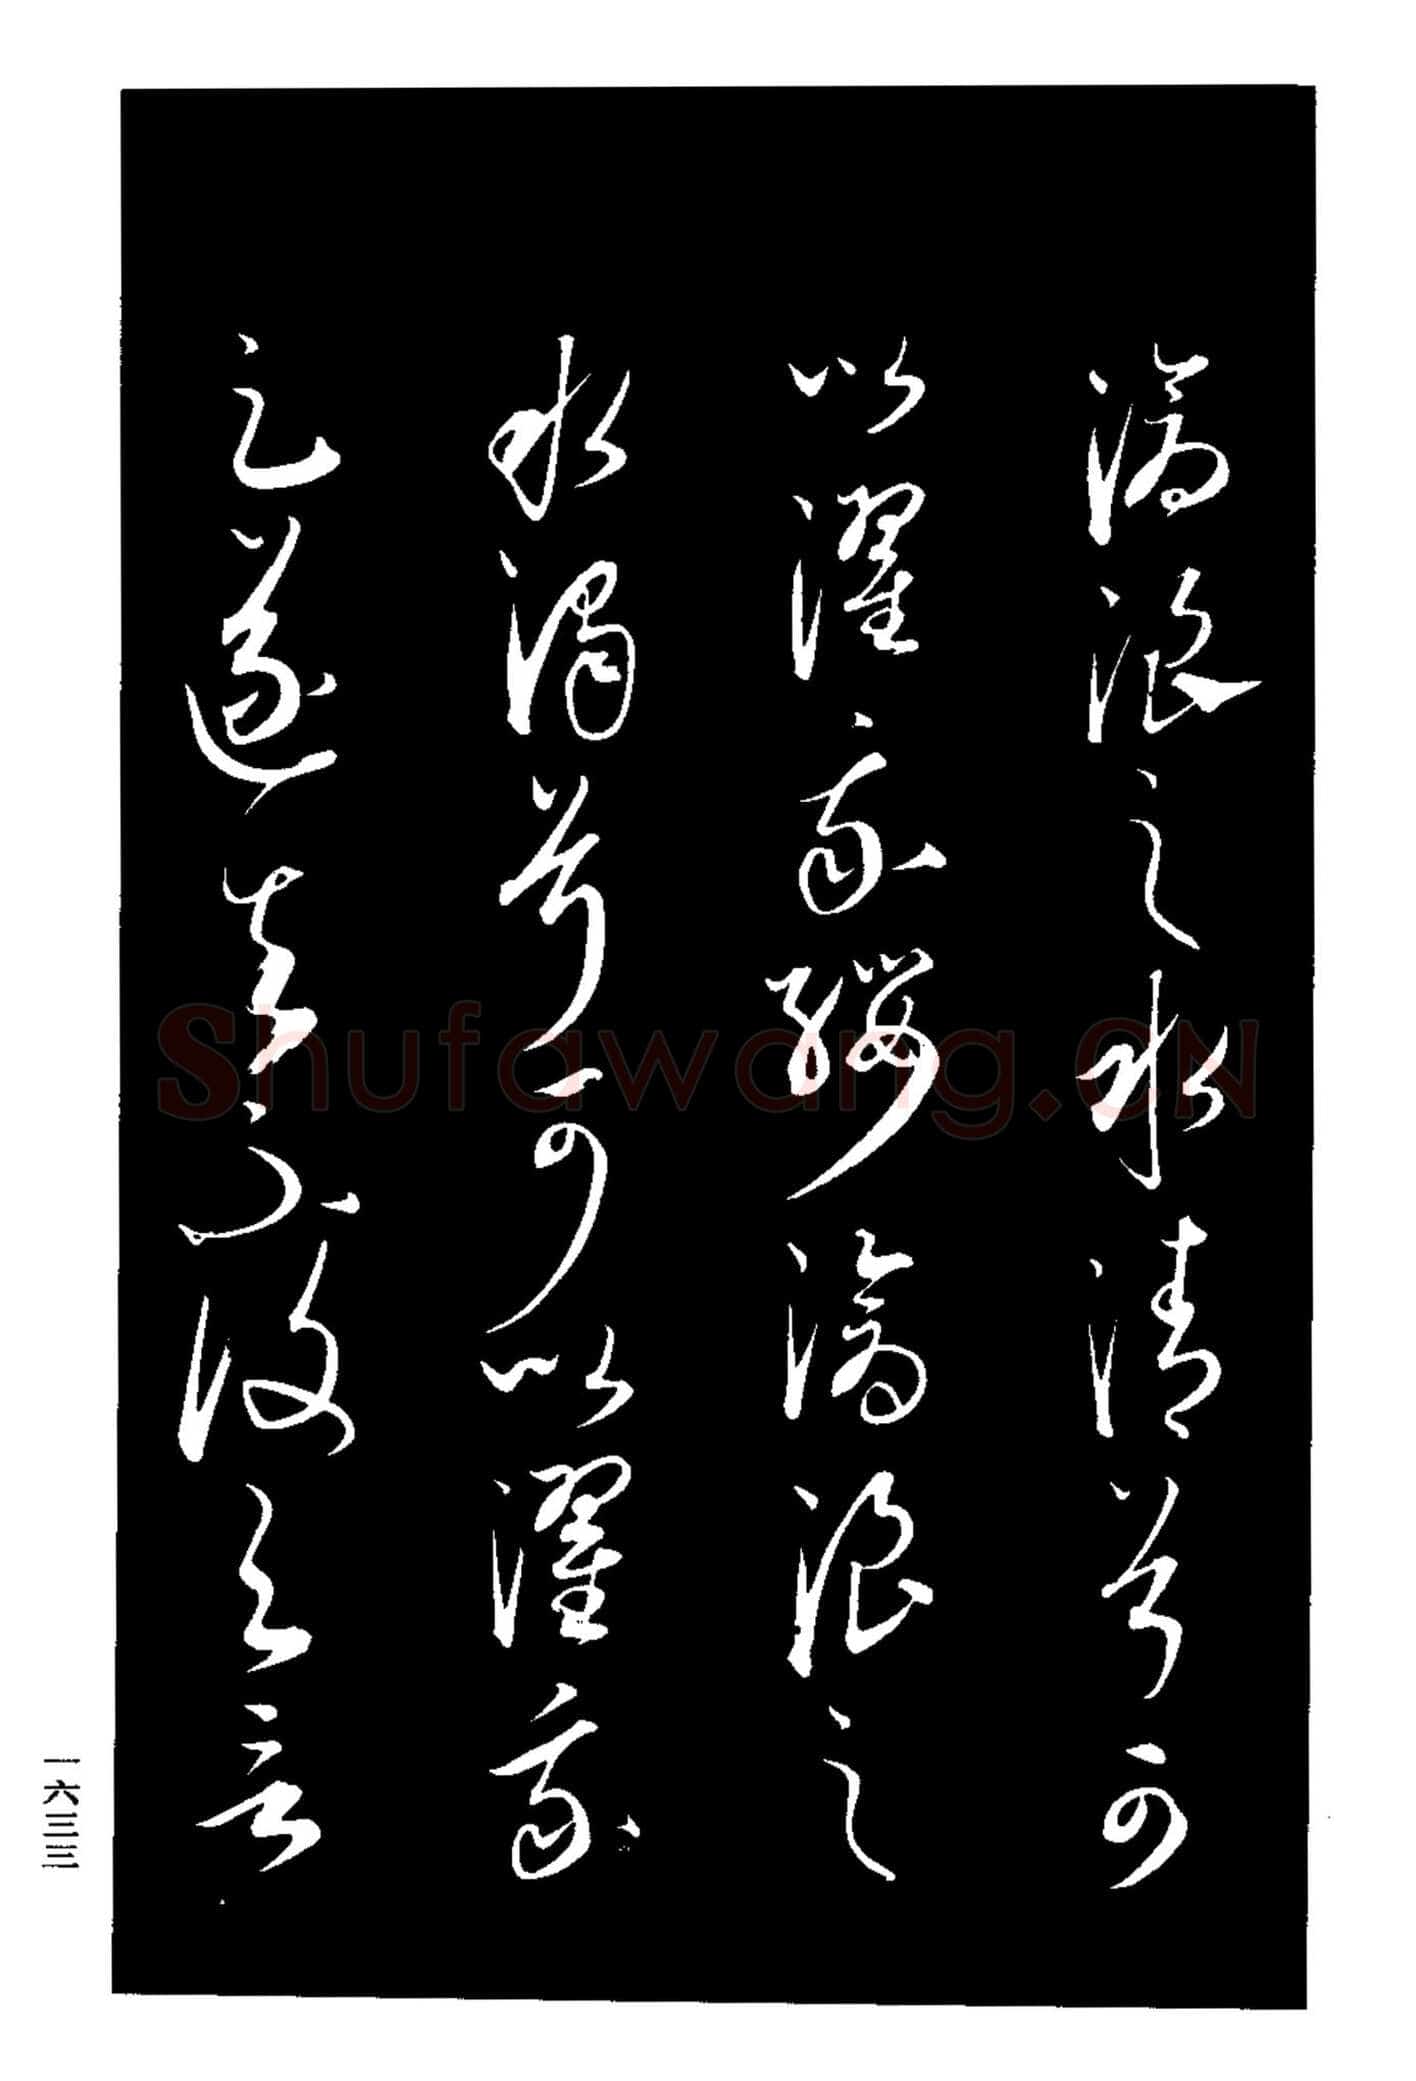 滄浪之水清兮可
以濯我纓滄浪之
水濁兮可以濯我
足遂去不復與言
Shufawang.CN